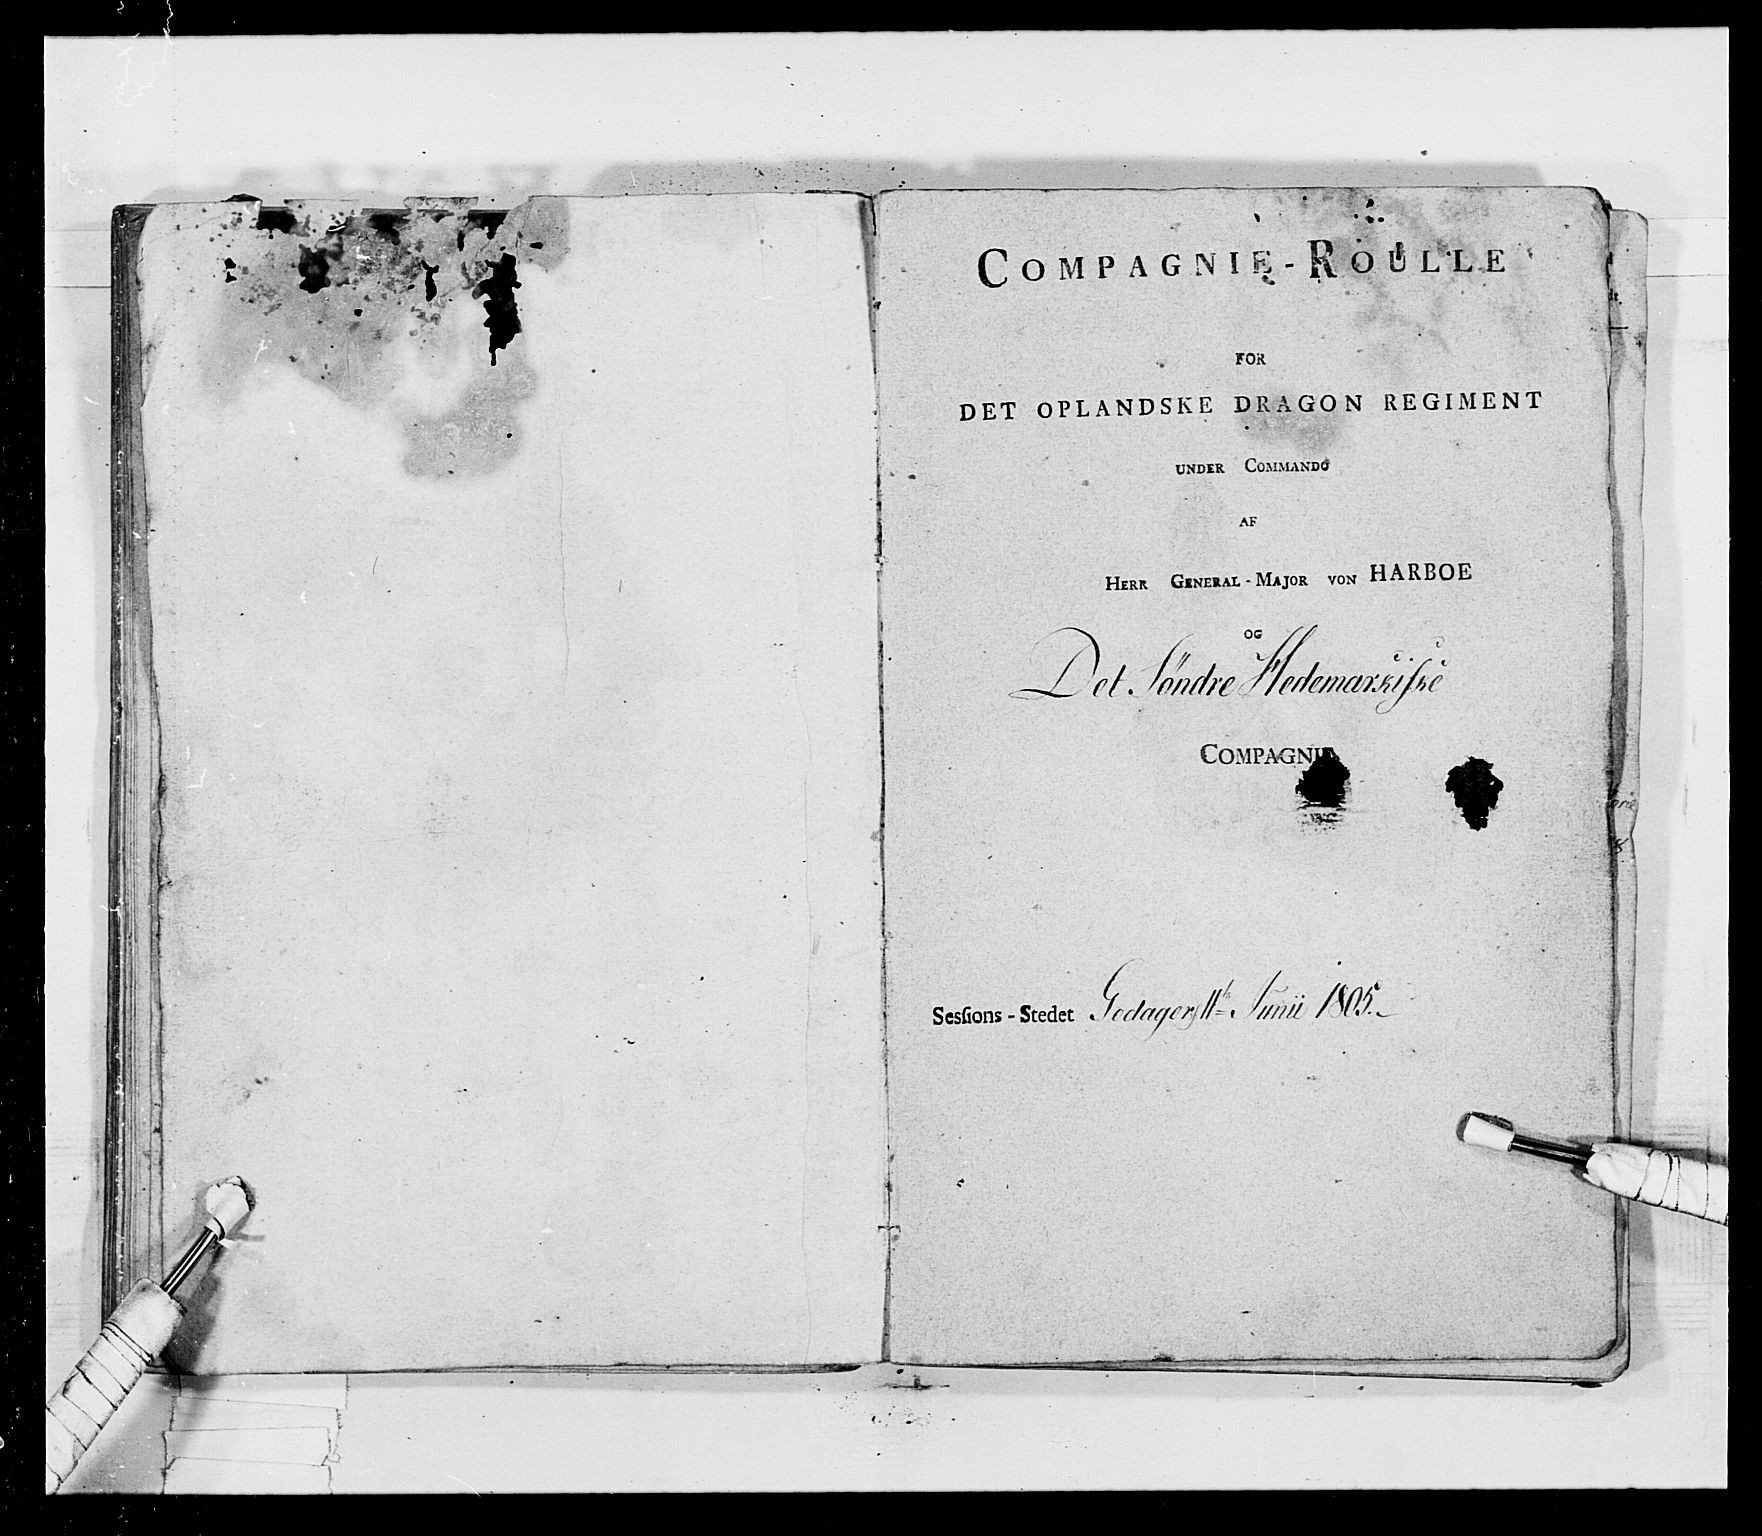 COMPAGNIE-ROULLE
FOR
DET OPLANDSKE DRAGON REGIMENT
UNDER COMMANDO
AF
HERR GENERAL-MAJOR VON HARBOE
OG
Det Söndre Hedemarkiske
COMPAGNIE
Sesſions-Stedet Godager 11te Junii 1805.